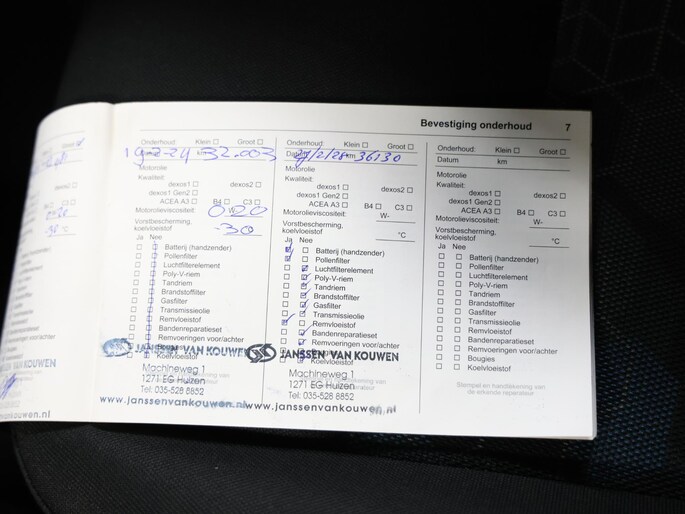 Bevestiging onderhoud 7
Onderhoud: Klein Groot
32.003
Motorolie
Kwaliteit:
dexos1 dexos2
dexos1 Gen2
ACEA A3 B4 C3
Motorolieviscositeit: 0 W- 20
Vorstbescherming,
koelvloeistof -30
Ja Nee
Batterij (handzender)
Pollenfilter
Luchtfilterelement
Poly-V-riem
Tandriem
Brandstoffilter
Gasfilter
Transmissieolie
Remvloeistof
Bandenreparatieset
Remvoeringen voor/achter
Koelvloeistof
JANSSEN VAN KOUWEN
Machineweg 1
1271 EG Huizen
Tel: 035-528 8852
www.janssenvankouwen.nl
Onderhoud: Klein Groot
Datum km 36130
Motorolie
Kwaliteit:
dexos1 dexos2
dexos1 Gen2
ACEA A3 B4 C3
Motorolieviscositeit: W-
Vorstbescherming,
koelvloeistof °C
Ja Nee
Batterij (handzender)
Pollenfilter
Luchtfilterelement
Poly-V-riem
Tandriem
Brandstoffilter
Gasfilter
Transmissieolie
Remvloeistof
Bandenreparatieset
Remvoeringen voor/achter
Koelvloeistof
JANSSEN VAN KOUWEN
Machineweg 1
1271 EG Huizen
Tel: 035-528 8852
www.janssenvankouwen.nl
Onderhoud: Klein Groot
Datum km
Motorolie
Kwaliteit:
dexos1 dexos2
dexos1 Gen2
ACEA A3 B4 C3
Motorolieviscositeit: W-
Vorstbescherming,
koelvloeistof °C
Ja Nee
Batterij (handzender)
Pollenfilter
Luchtfilterelement
Poly-V-riem
Tandriem
Brandstoffilter
Gasfilter
Transmissieolie
Remvloeistof
Bandenreparatieset
Remvoeringen voor/achter
Bougies
Koelvloeistof
Stempel en handtekening van
de erkende reparateur